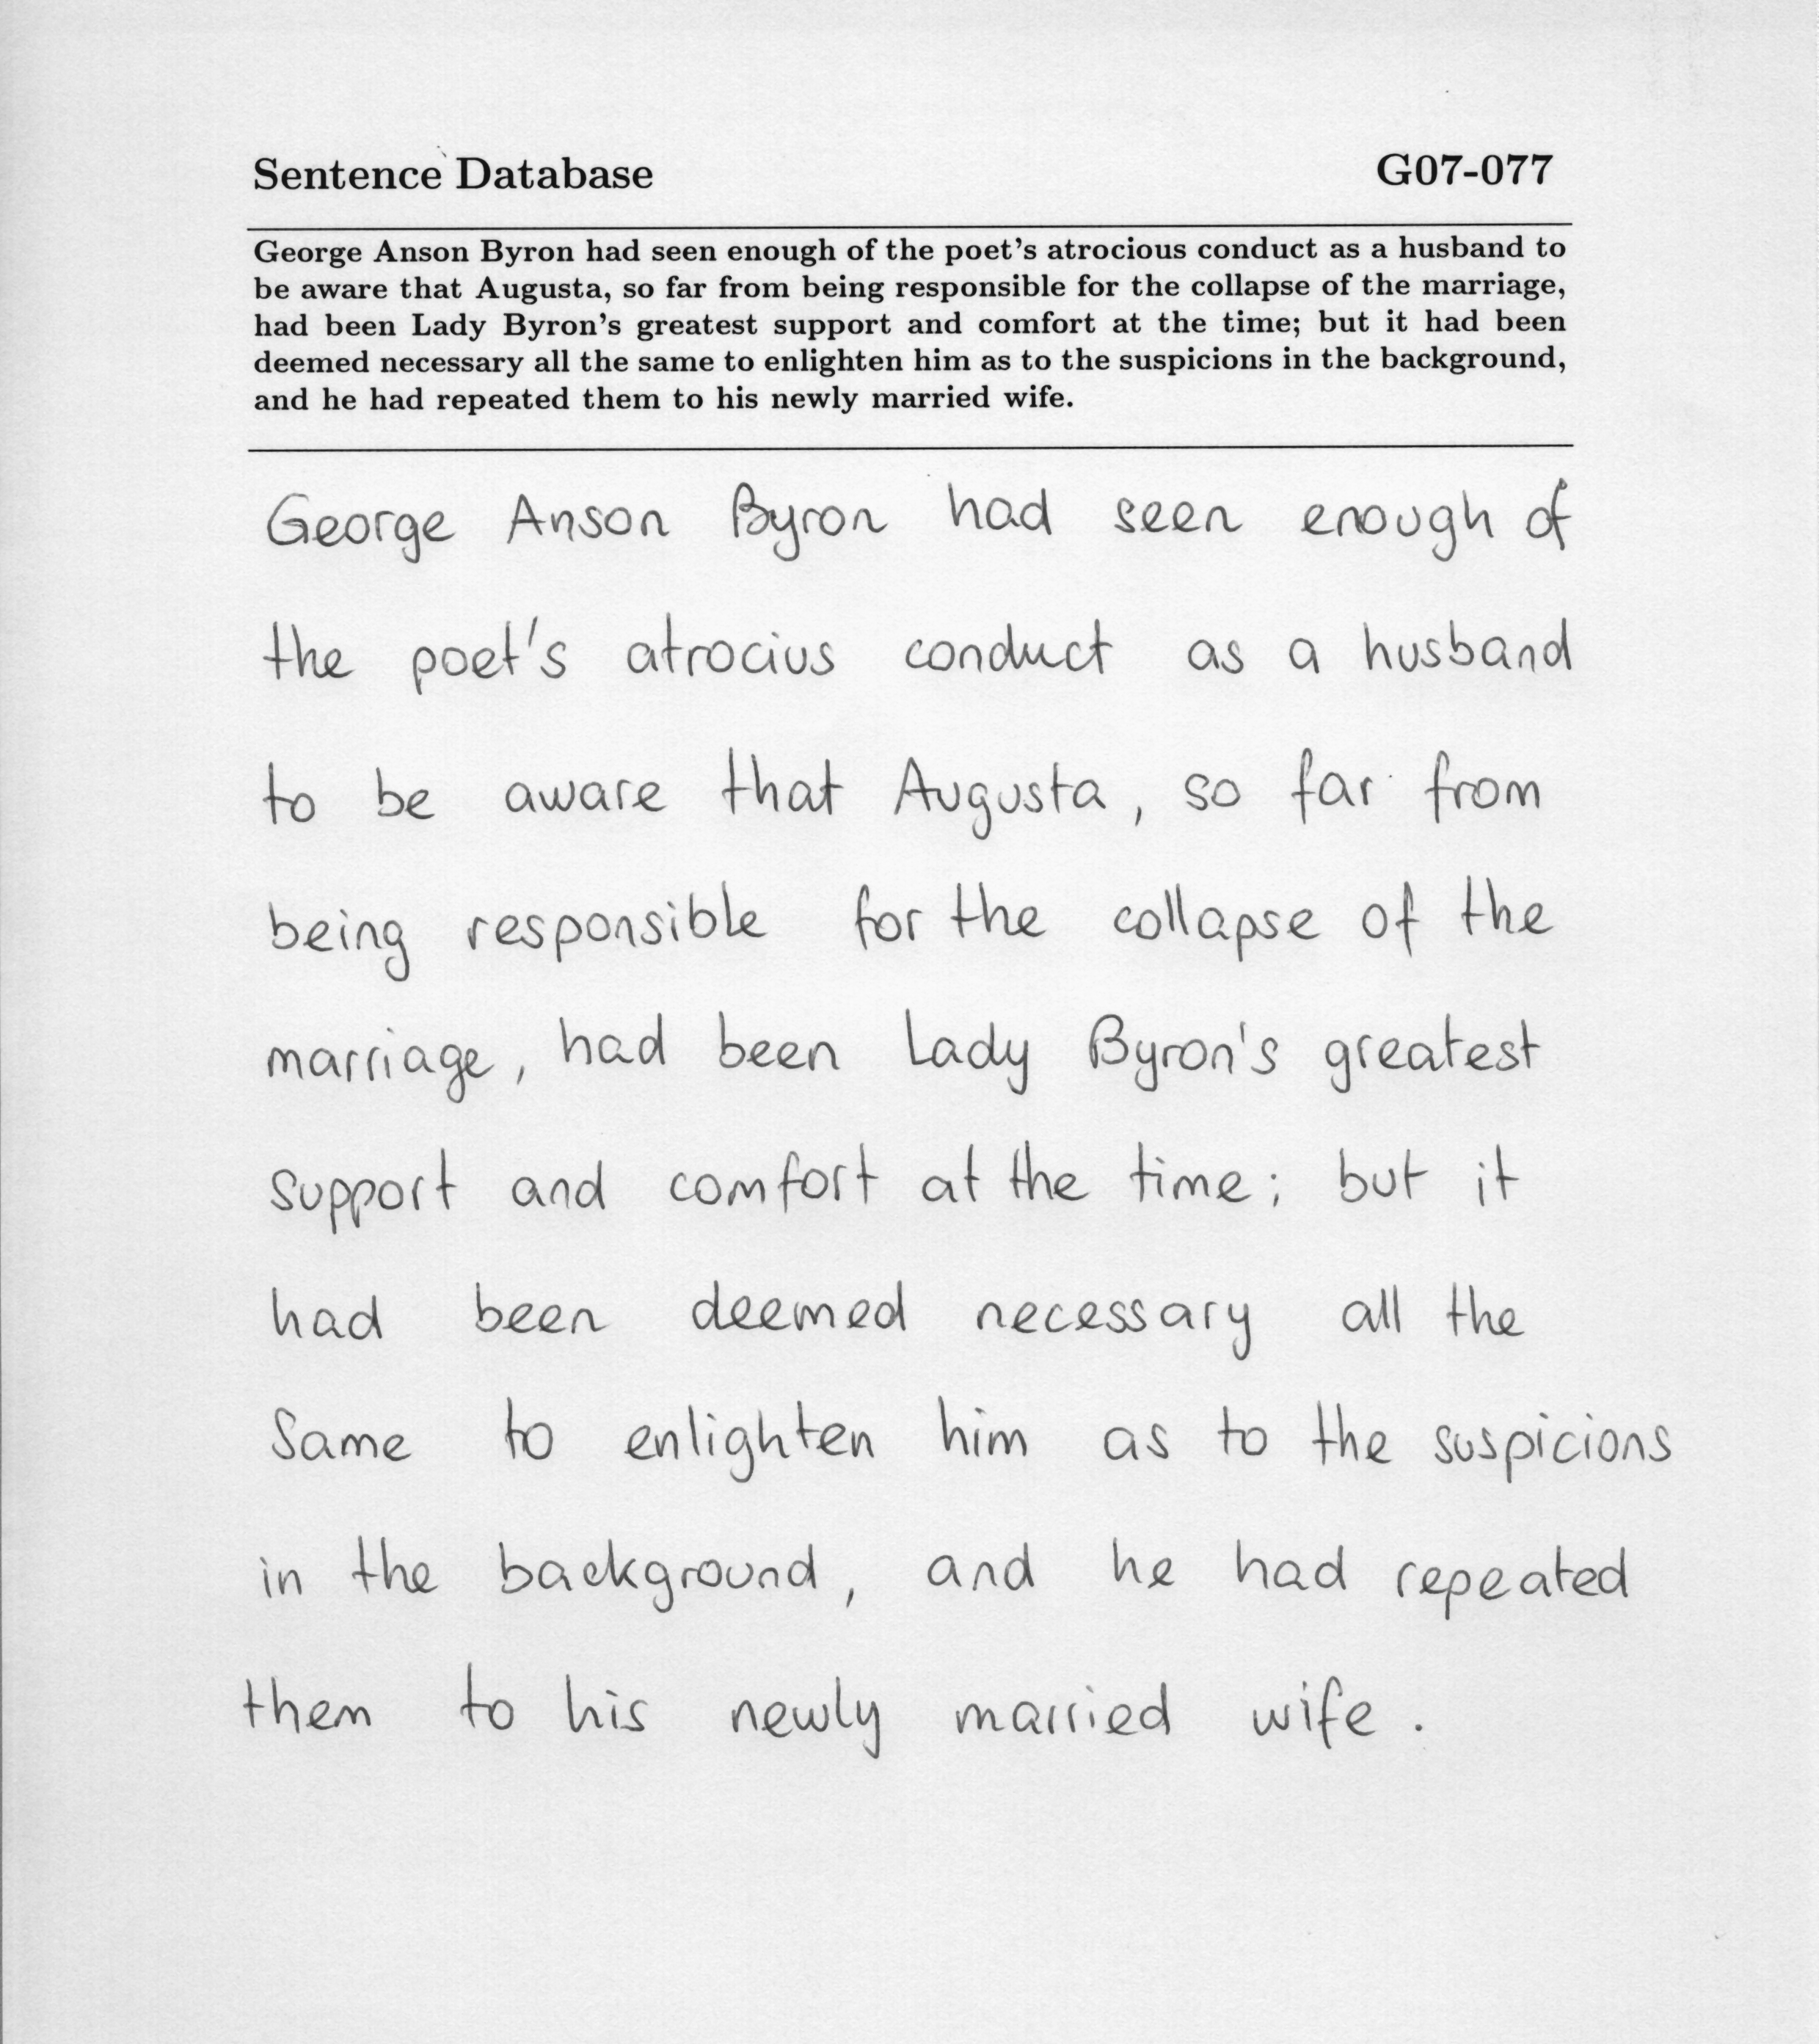 Sentence Database G07-077
George Anson Byron had seen enough of the poet's atrocious conduct as a husband to
be aware that Augusta, so far from being responsible for the collapse of the marriage,
had been Lady Byron's greatest support and comfort at the time; but it had been
deemed necessary all the same to enlighten him as to the suspicions in the background,
and he had repeated them to his newly married wife.
George Anson Byron had seen enough of
the poet's atrocius conduct as a husband
to be aware that Augusta, so far from
being responsible for the collapse of the
marriage, had been Lady Byron's greatest
support and comfort at the time; but it
had been deemed necessary all the
Same to enlighten him as to the suspicions
in the background, and he had repeated
them to his newly married wife.